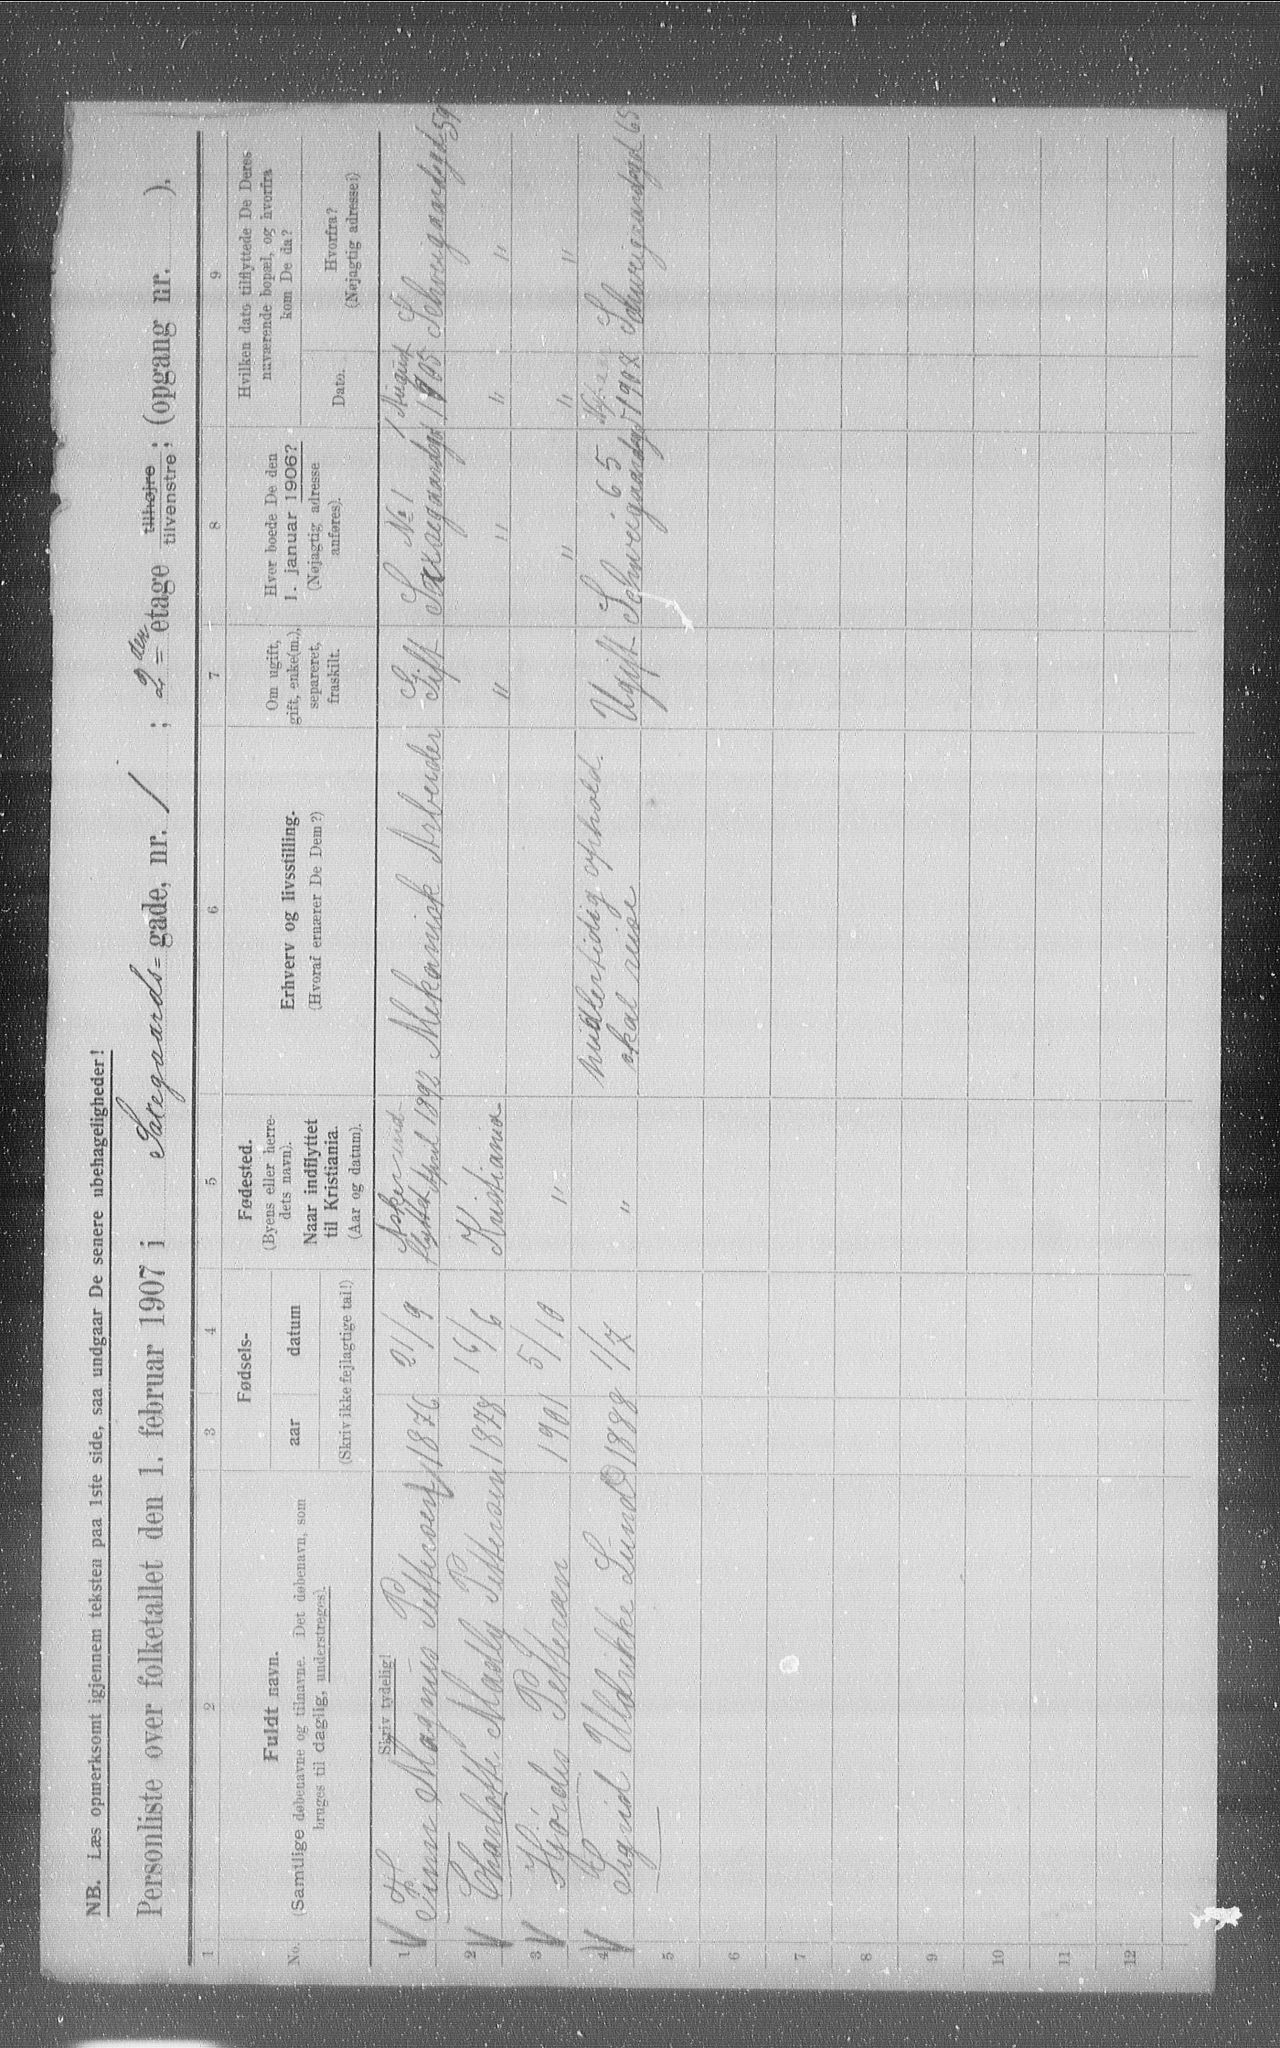 NB. Læs opmerksomt igjennem teksten paa 1ste side, saa undgaar De senere ubehageligheder!
Personliste over folketallet den 1. februar 1907 i Saxegaards=gade, nr. 1; 2den= etage tilhøjre tilvenstre; (opgang nr. ).
1 2 3 4 5 6 7 8 9
No.
Fuldt navn.
(Samtlige døbenavne og tilnavne. Det døbenavn, som
bruges til daglig, understreges).
Fødsels-
aar datum
(Skriv ikke fejlagtige tal!)
Fødested.
(Byens eller herre-
dets navn).
Naar indflyttet
til Kristiania.
(Aar og datum).
Erhverv og livsstilling.
(Hvoraf ernærer De Dem?)
Om ugift,
gift, enke(m.),
separeret,
fraskilt.
Hvor boede De den
1. januar 1906?
(Nøjagtig adresse
anføres).
Hvilken dato tilflyttede De Deres
nuværende bopæl, og hvorfra
kom De da?
Dato.
Hvorfra?
(Nøjagtig adresse!)
Skriv tydelig!
1 Finn Magnus Pettersen 1876 21/9 Asker ind-
flyttet April 1892 Mekanisk Arbeider Gift Saxegaardsgd No 1 1 August 1905 Schweigaardsgd 59
2 Charlotte Madly Pettersen 1878 16/6 Kristiania " " " "
3 Hjördis Pettersen 1901 5/10 " " " "
4 Sigrid Uldrikke Lund 1888 1/7 " midlertidig ophold.
skal reise Ugift Schweigaardsgd 65 1907 Schweigaardsgd 65
5
6
7
8
9
10
11
12